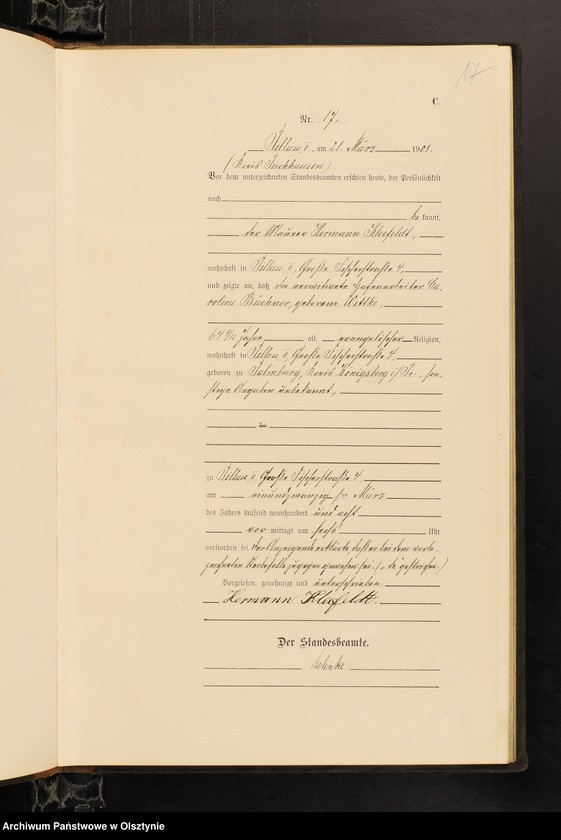 17
C.
Nr. 17.
Pillau II, am 21. März 1908.
(Kreis Fischhausen)
Vor dem unterzeichneten Standesbeamten erschien heute, der Persönlichkeit
nach
be kannt,
der Maurer Hermann Kleefeldt,
wohnhaft in Pillau II, Große Fischerstraße 4,
und zeigte an, daß die verwitwete Hafenarbeiter Ca-
roline Büchner, geborene Wittke,
64 1/2 Jahre alt, evangelischer Religion,
wohnhaft in Pillau II Große Fischerstraße 4,
geboren zu Kreis Königsberg i/Pr., son-
stige Angaben unbekannt,
zu Pillau II, Große Fischerstraße 4
am März
des Jahres tausend neunhundert und acht
vor mittags um sechs Uhr
verstorben sei. Der Anzeigende erklärte daß er bei dem vorbe-
zeichneten Sterbefalle zugegen gewesen sei.
Vorgelesen, genehmigt und unterschrieben
Hermann Kleefeldt.
Der Standesbeamte.
Archiwum Państwowe w Olsztynie